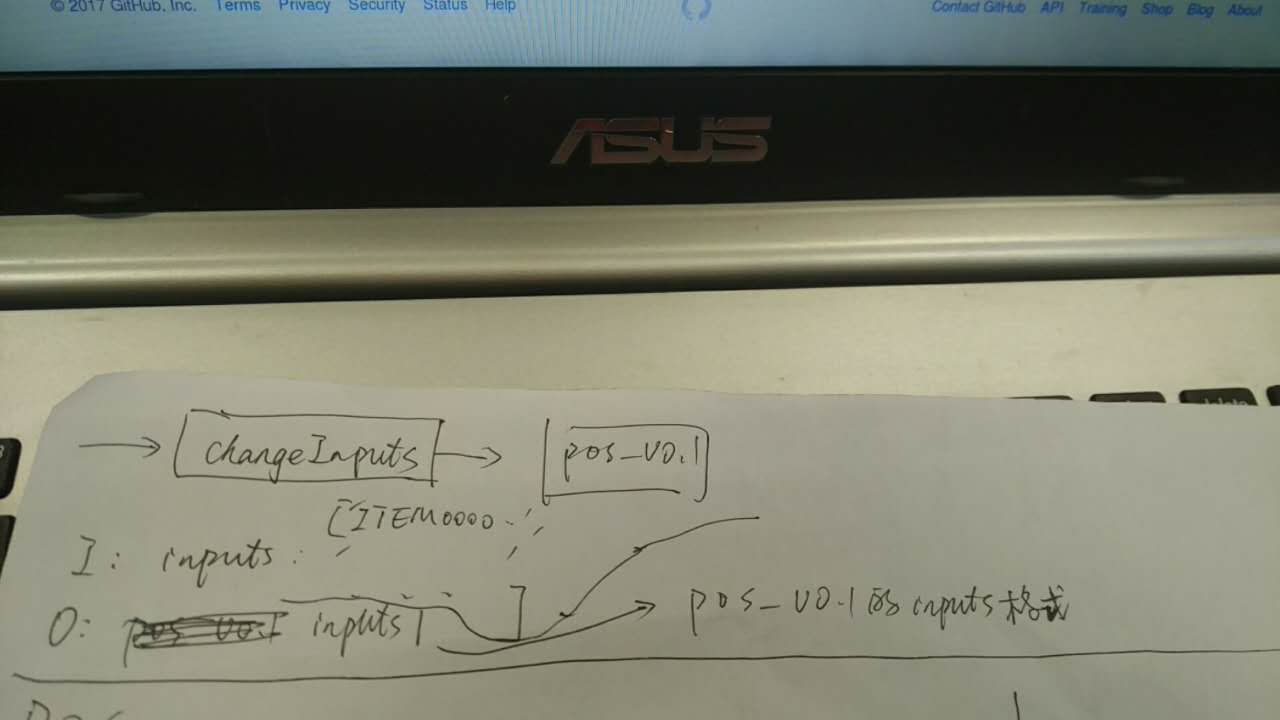 © 2017 GitHub, Inc. Terms Privacy Security Status Help Contact GitHub API Training Shop Blog About
ASUS
delete
changeInputs pos_v0.1
['ITEM0000..'
I: inputs:
]
O: pos_v0.1 inputs1 pos_v0.1的inputs格式